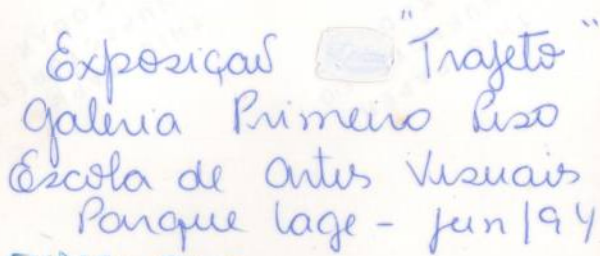 Exposição "Trajeto"
Galeria Primeiro Piso
Escola de Artes Visuais
Parque Lage - jun/94